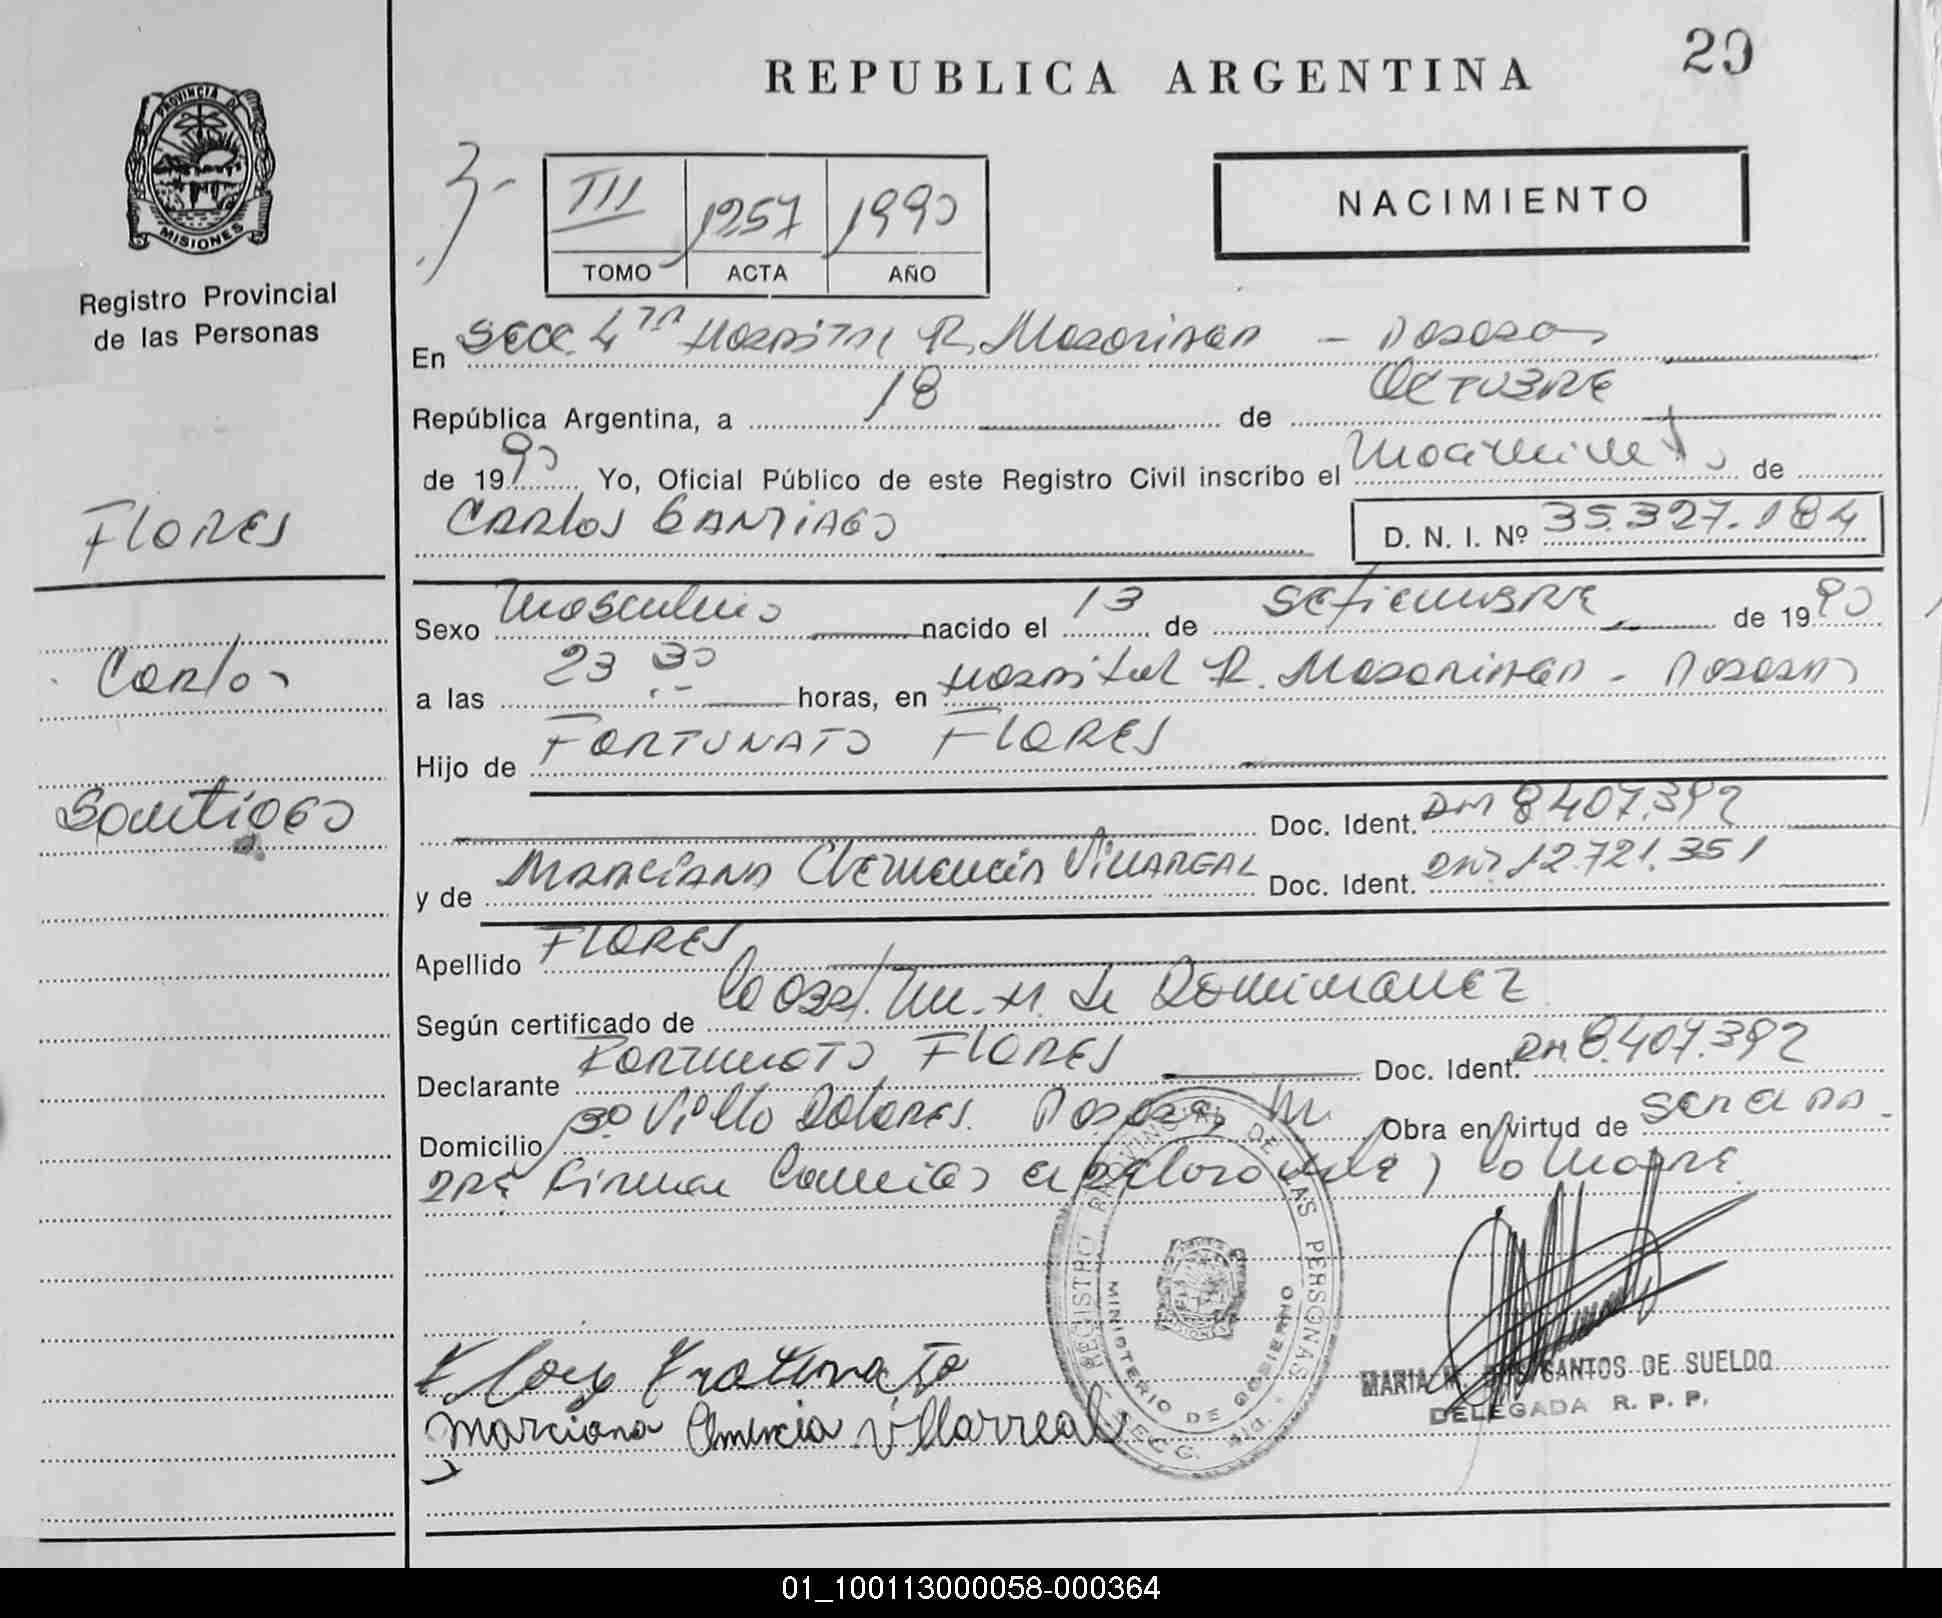 29
REPUBLICA ARGENTINA
PROVINCIA DE
MISIONES
Registro Provincial
de las Personas
NACIMIENTO
III 1257 1990
TOMO ACTA AÑO
En Secc. 4ta Hospital R. Madariaga - Posadas
República Argentina, a 18 de Octubre
de 1990 Yo, Oficial Público de este Registro Civil inscribo el Nacimiento de
Carlos Santiago
D. N. I. Nº 35.327.184
FLORES
Carlos
Santiago
Sexo Masculino nacido el 13 de Setiembre de 1990
a las 23 30 horas, en Hospital R. Madariaga - Posadas
Hijo de FORTUNATO FLORES
Doc. Ident. DM 8407.392
y de Marciana Clemencia VILLAREAL Doc. Ident. DNI 12.721.351
Apellido FLORES
Según certificado de la Obst. M. H. de Dominguez
Declarante Fortunato FLORES Doc. Ident. DM 8.407.392
Domicilio Bº Villa Dolores. Posadas Obra en virtud de ser el pa-
dre Firman Conmigo el declarante y la Madre
REGISTRO PROVINCIAL DE LAS PERSONAS
MINISTERIO DE GOBIERNO
SECC.
Marciana Clmencia Villarreal
MARIA SANTOS DE SUELDO
DELEGADA R. P. P.
01_100113000058-000364